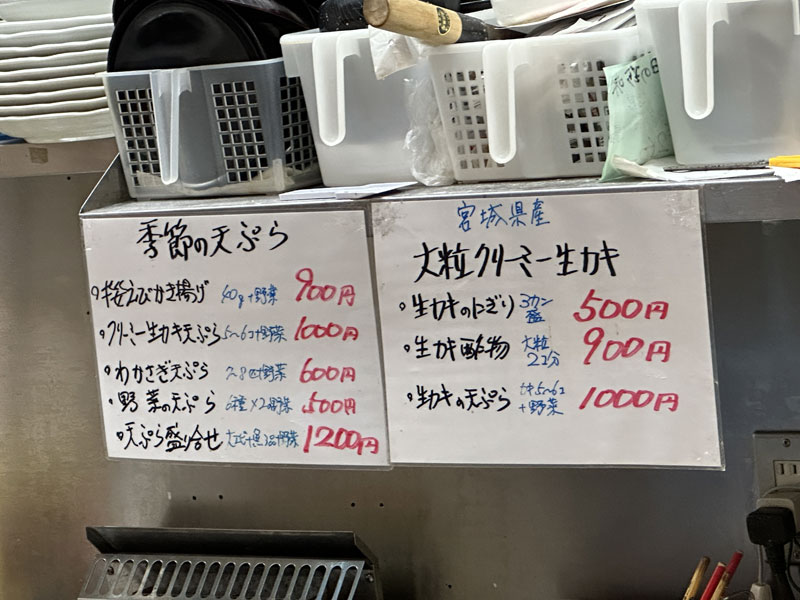 季節の天ぷら
桜えびかき揚げ 40g+野菜 900円
クリーミー生カキ天ぷら 5〜6コ+野菜 1000円
わかさぎ天ぷら 7〜8匹+野菜 600円
野菜の天ぷら 500円
天ぷら盛り合せ 1200円
宮城県産
大粒クリーミー生カキ
生カキのにぎり 3カン盛 500円
生カキ酢物 大粒2コ分 900円
生カキの天ぷら カキ5〜6コ+野菜 1000円